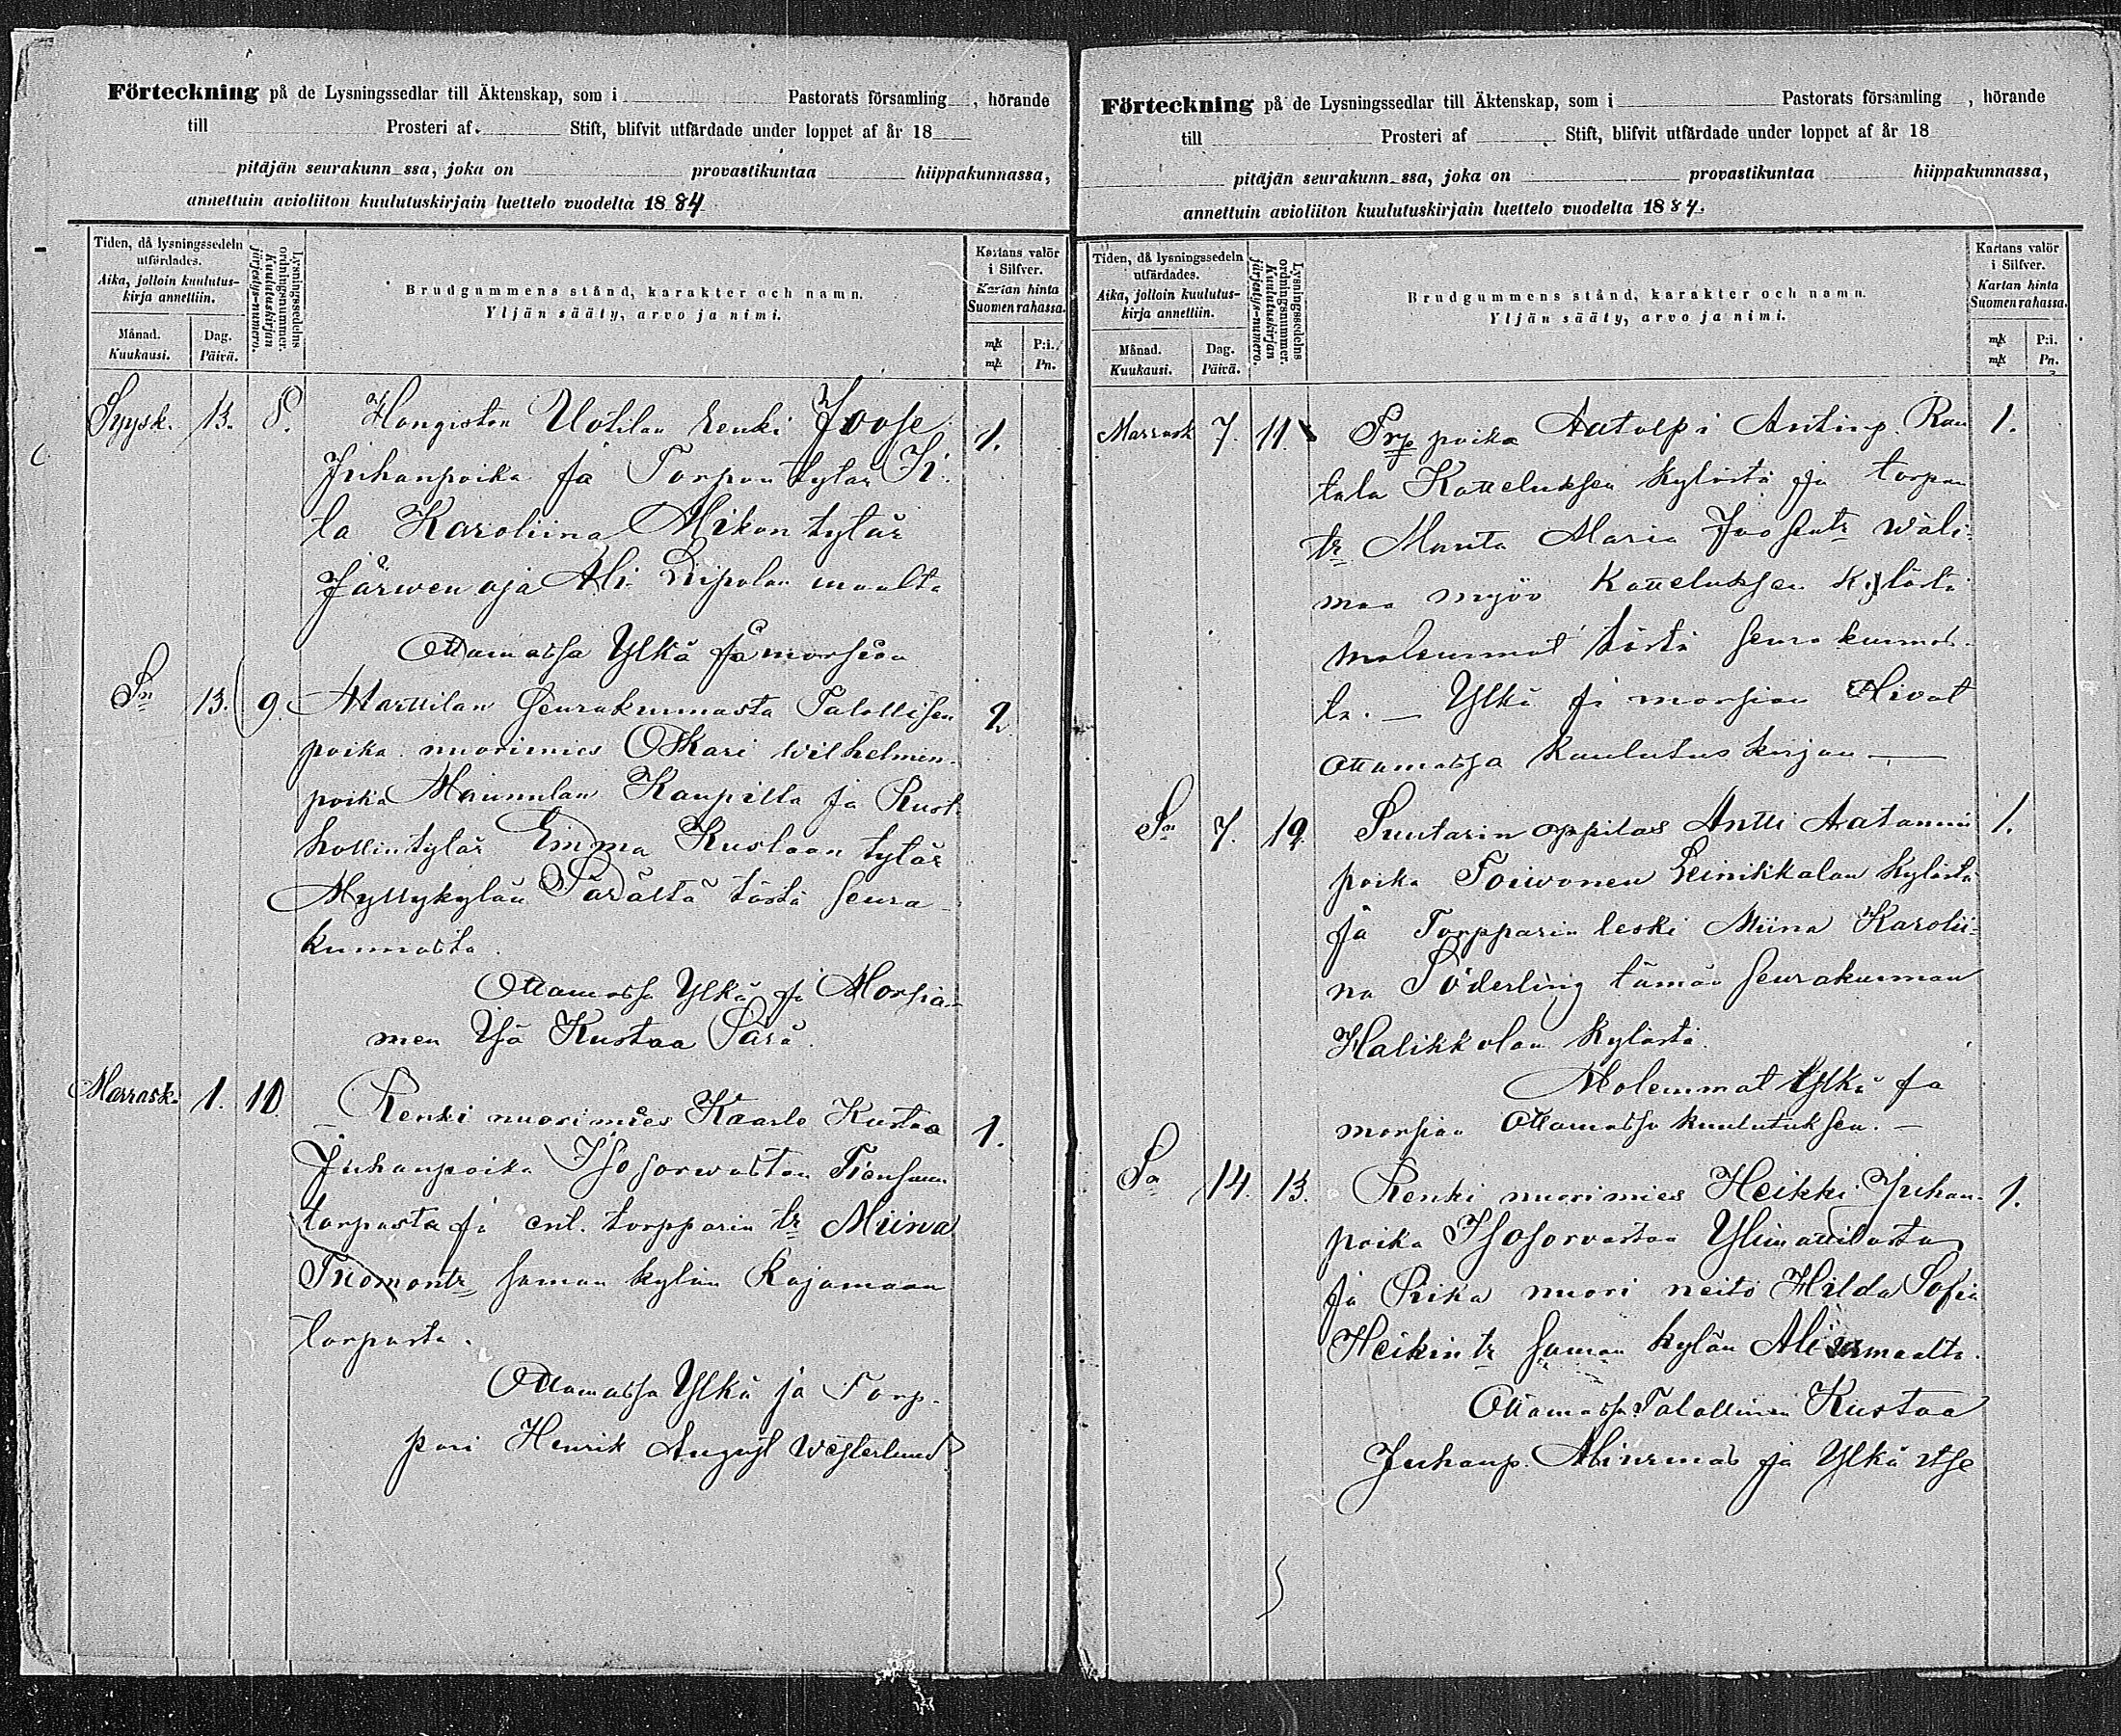 Förteckning på de Lysningssedlar till Äktenskap, som i Pastorats församling , hörande
till Prosteri af. Stift, blifvit utfärdade under loppet af år 18
pitäjän seurakunn ssa, joka on provastikuntaa hiippakunnassa,
annettuin avioliiton kuulutuskirjain luettelo vuodelta 1884
Tiden, då lysningssedeln
utfärdades.
Aika, jolloin kuulutus-
kirja annettiin.
Månad.
Kuukausi.
Dag.
Päivä.
Lysningssedelns
ordningsnummer.
Kuulutuskirjan
järjestys-numero.
Brudgummens stånd, karakter och namn.
Yljän sääty, arvo ja nimi.
Kartans valör
i Silfver.
Kartan hinta
Suomen rahassa.
mk P:i.
mk. Pn.
Syysk. 13. 8. Hongiston Uotilan renki Joose 1.
Juhanpoika ja Torpan tytär Ii
ta Karoliina Mikon tytär
Järwenoja Ali Liipolan maalta
Ottamassa Ylkä ja morsian
Sn 13. 9. Marttilan seurakunnasta Talollisen 2.
poika nuorimies Oskari Wilhelmin-
poika Maunulan Kaupilta ja Rust-
hollin tytär Emma Kustaan tytär
Myllykylän Pärältä tästä seura-
kunnasta.
Ottamassa Ylkä ja Morsia-
men Isä Kustaa Pärä.
Marrask. 1. 10. Renki nuorimies Kaarlo Kustaa 1.
Juhanpoika Isosorwaston Tiensuun
torpasta ja ent. torpparin tr Miina
Tuomontr saman kylän Rajamaan
torpasta.
Ottamassa Ylkä ja Torp-
pari Henrik August Westerlund
Förteckning på de Lysningssedlar till Äktenskap, som i Pastorats församling , hörande
till Prosteri af Stift, blifvit utfärdade under loppet af år 18
pitäjän seurakunn ssa, joka on provastikuntaa hiippakunnassa,
annettuin avioliiton kuulutuskirjain luettelo vuodelta 1884.
Tiden, då lysningssedeln
utfärdades.
Aika, jolloin kuulutus-
kirja annettiin.
Månad.
Kuukausi.
Dag.
Päivä.
Lysningssedelns
ordningsnummer.
Kuulutuskirjan
järjestys-numero.
Brudgummens stånd, karakter och namn.
Yljän sääty, arvo ja nimi.
Kartans valör
i Silfver.
Kartan hinta
Suomen rahassa.
mk P:i.
mk Pn.
Marrask 7. 11. poika Aatolpi Antinp. Rau 1.
tala Katteluksen kylästä ja torpan
tr Manta Maria Joosentr Wäli-
maa myös Katteluksen Kylästä
molemmat tästä seurakunnas-
ta. — Ylkä ja morsian olivat
ottamassa kuulutus kirjan —
Sn 7. 12. Suutarin oppilas Antti Aatamin 1.
poika Toiwonen Leinikkalan kylästä
ja Torpparin leski Miina Karolii-
na Söderling tämän seurakunnan
Halikkolan kylästä.
Molemmat Ylkä ja
morsian Ottamassa kuulutuksen. —
Sn 14. 13. Renki nuorimies Heikki Juhan- 1.
poika Isosorvaston Ylimattilasta
ja Piika nuori neito Hilda Sofia
Heikintr saman kylän Aliurmaalta.
Ottamassa Talollinen Kustaa
Juhanp. Aliurmas ja Ylkä itse